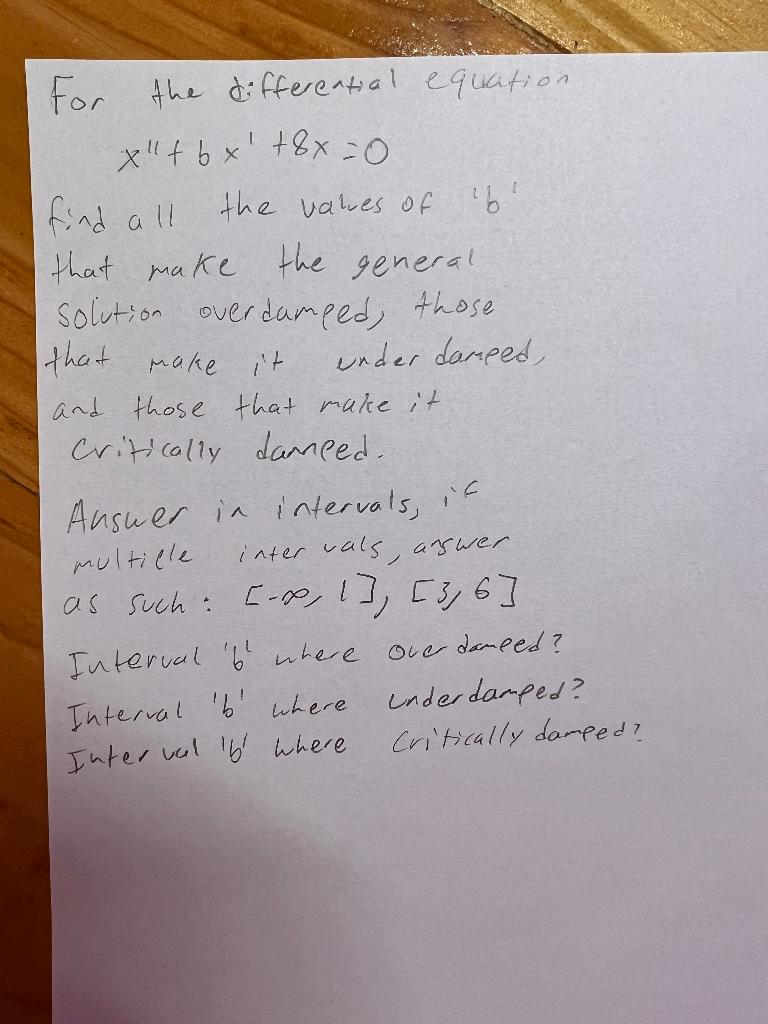 For the differential equation
x'' + b x' + 8x = 0
find all the values of 'b'
that make the general
solution overdamped, those
that make it underdamped,
and those that make it
critically damped.
Answer in intervals, if
multiple intervals, answer
as such: [-∞, 1], [3, 6]
Interval 'b' where overdamped?
Interval 'b' where underdamped?
Interval 'b' where critically damped?